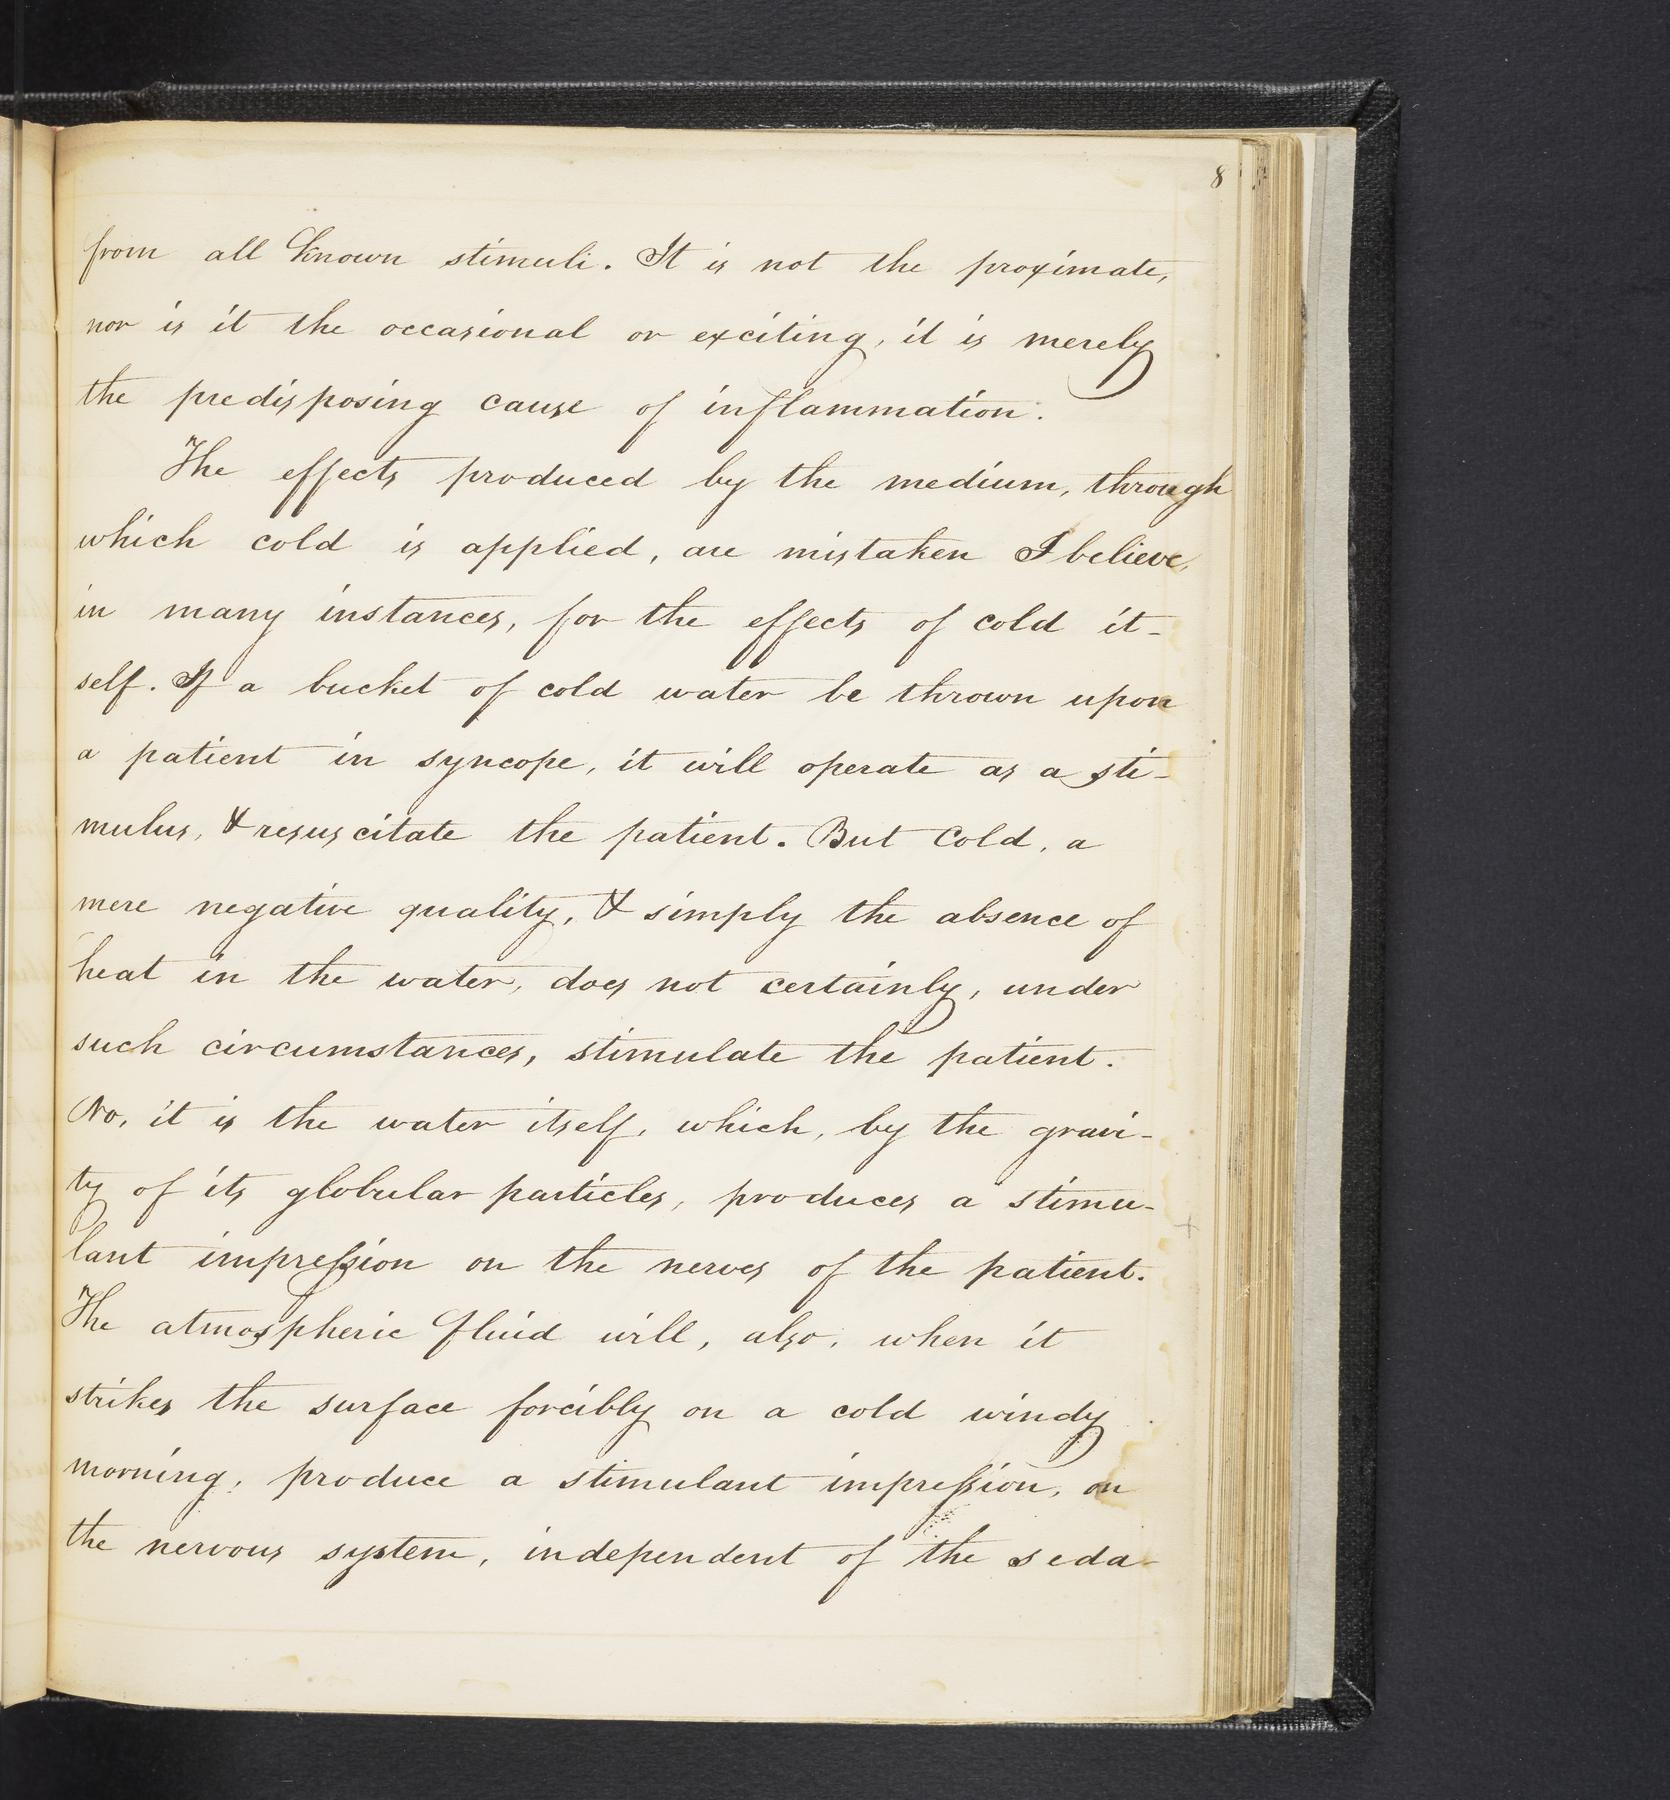 8
from all known stimuli. It is not the proximate,
nor is it the occasional or exciting, it is merely
the predisposing cause of inflammation.
The effects produced by the medium, through
which cold is applied, are mistaken I believe,
in many instances, for the effects of cold it-
self. If a bucket of cold water be thrown upon
a patient in syncope, it will operate as a sti-
mulus, & resuscitate the patient. But Cold, a
mere negative quality, & simply the absence of
heat in the water, does not certainly, under
such circumstances, stimulate the patient.
No, it is the water itself, which, by the gravi-
ty of its globular particles, produces a stimu-
lant impreſsion on the nerves of the patient.
The atmospheric fluid will, also, when it
strikes the surface forcibly on a cold windy
morning, produce a stimulant impreſsion, on
the nervous system, independent of the seda-